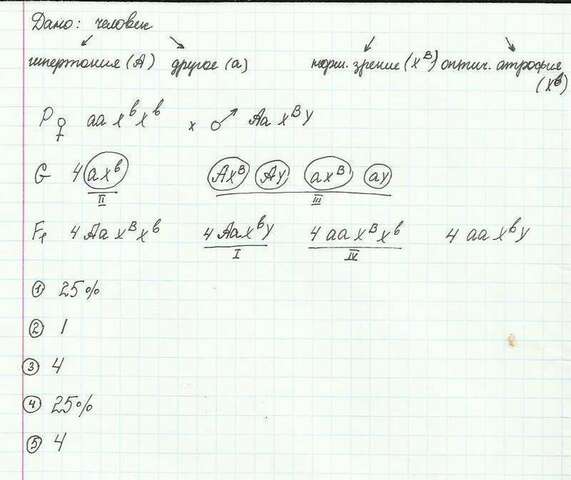 Дано: человек
гипертония (A) другое (a) норм. зрение (x^B) оптич. атрофия (x^b)
P ♀ aa x^b x^b x ♂ Aa x^B y
G 4 ax^b Ax^B Ay ax^B ay
II III
F₁ 4 Aa x^B x^b 4 Aa x^b y 4 aa x^B x^b 4 aa x^b y
I IV
① 25%
② 1
③ 4
④ 25%
⑤ 4